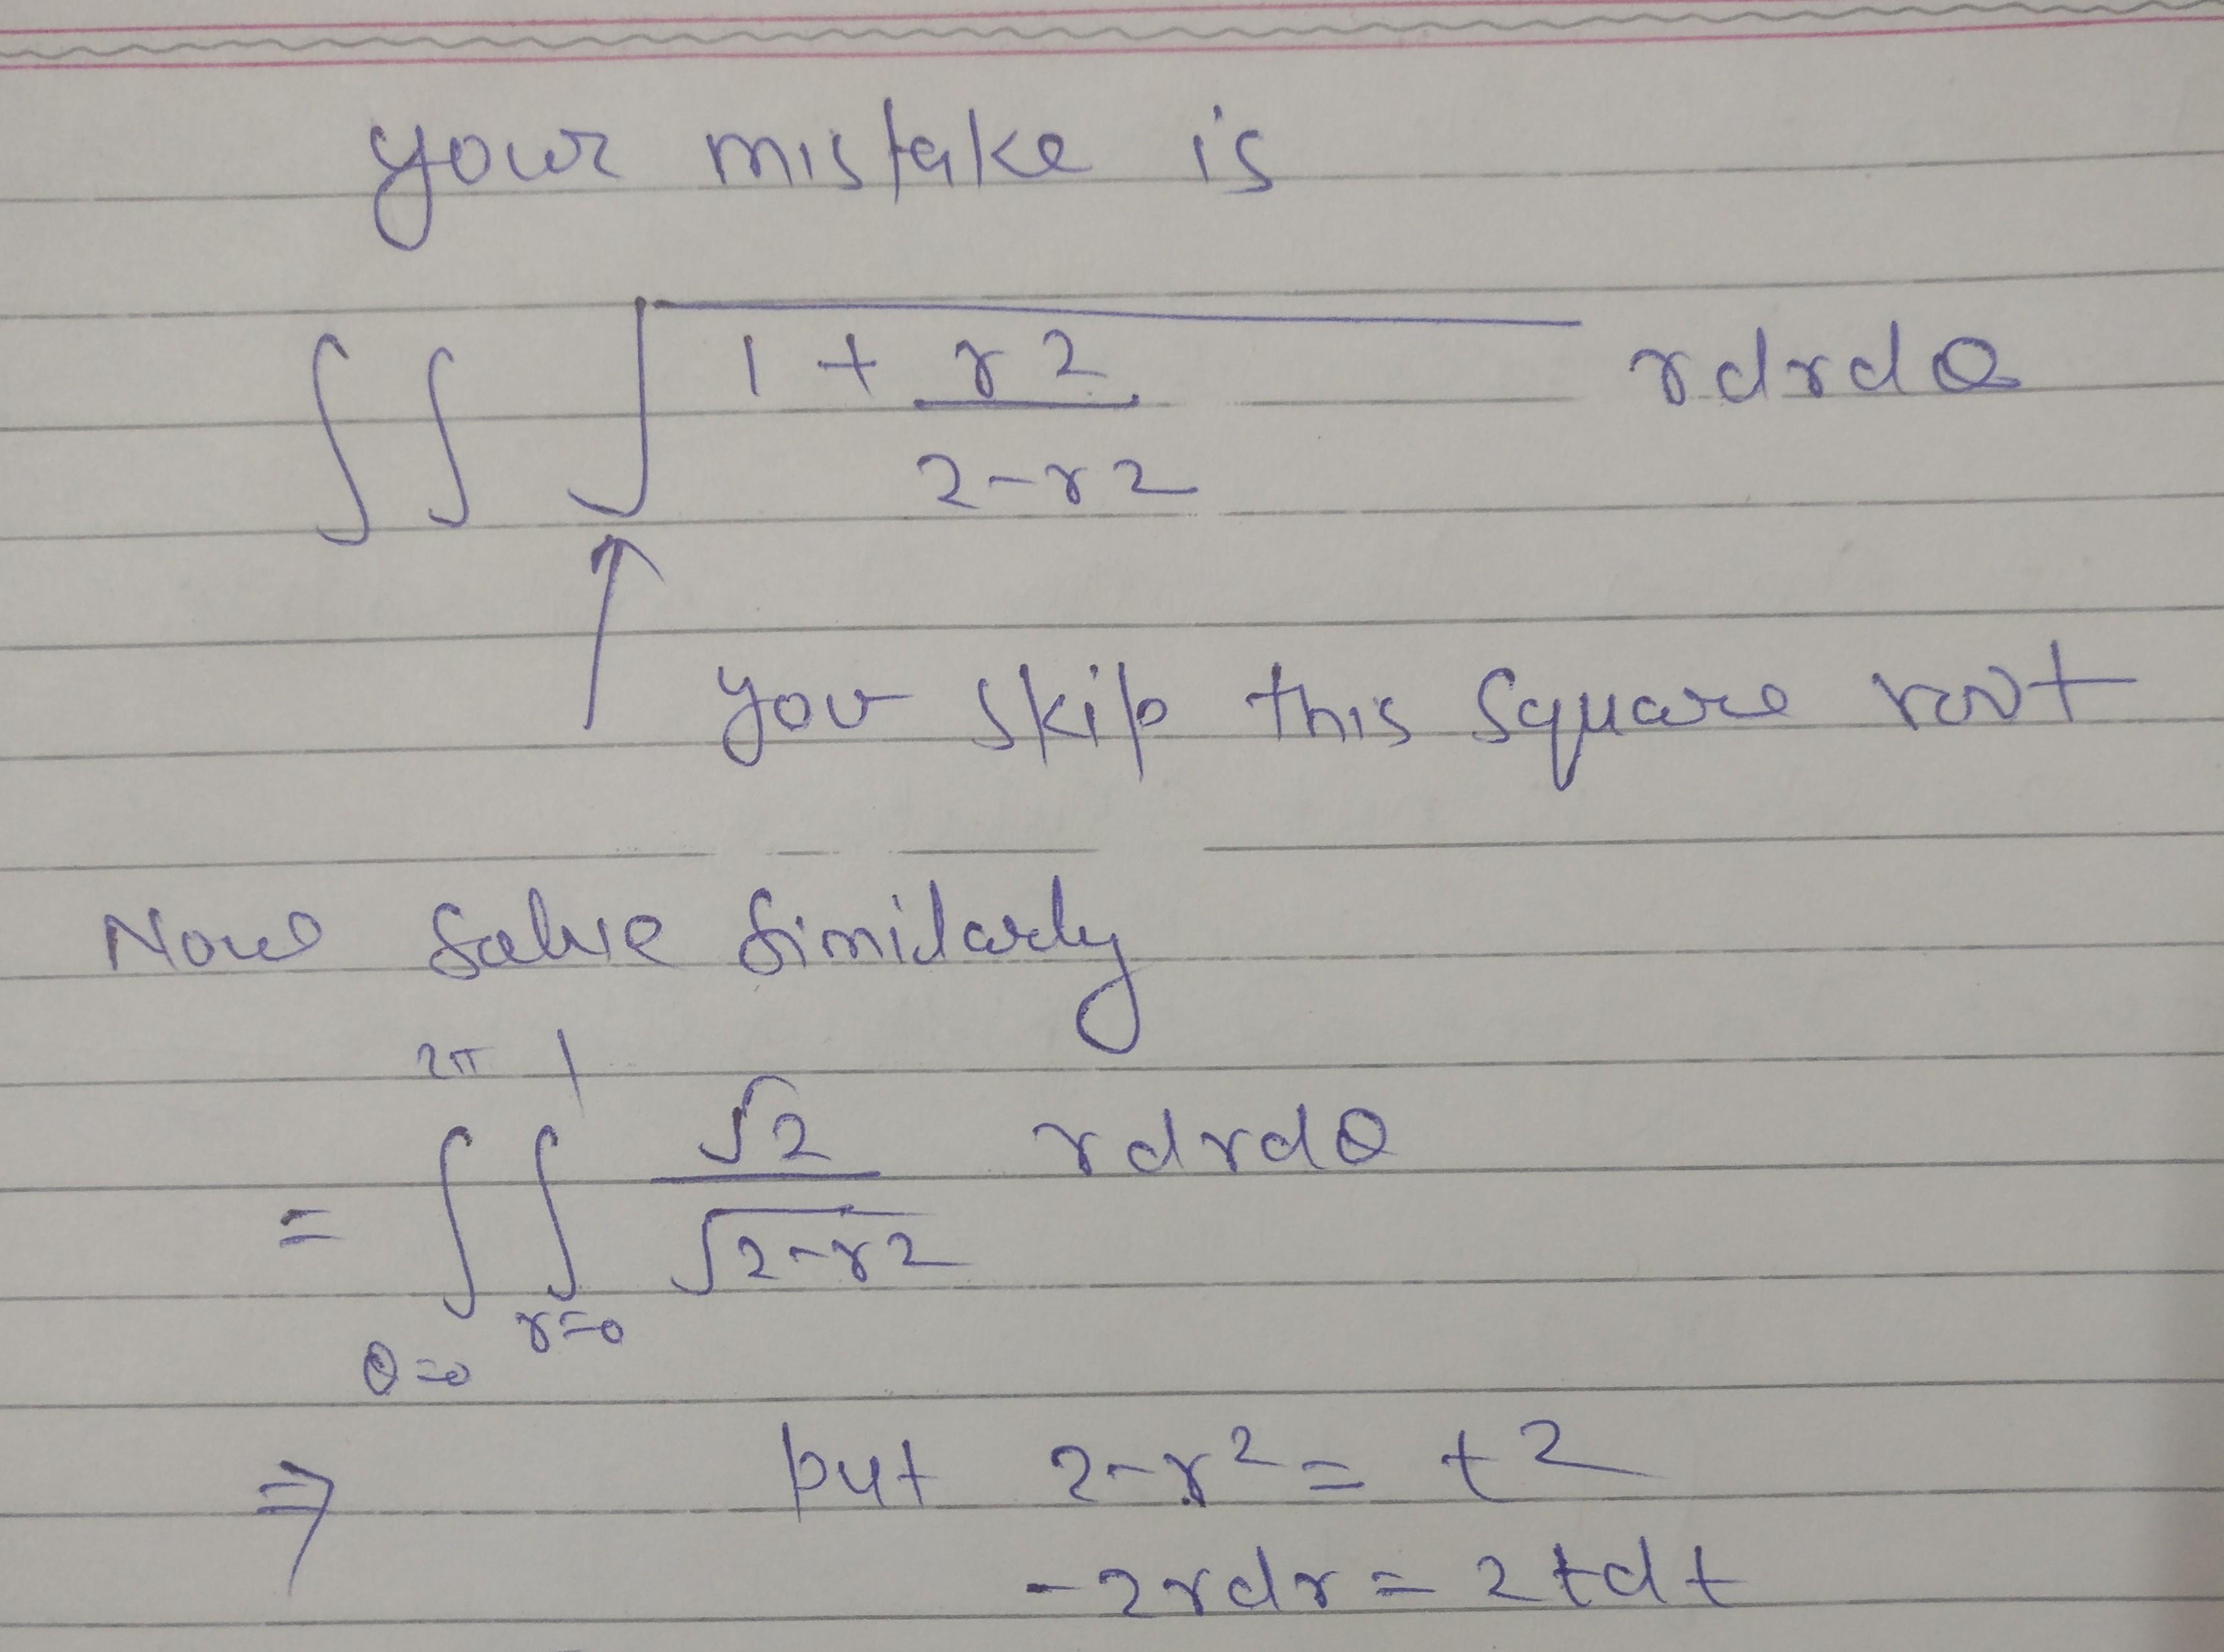 your mistake is
∫∫ √(1 + r2/(2-r2)) rdrdθ
you skip this square root
Now solve similarly
= ∫_{θ=0}^{2π} ∫_{r=0}^{1} √2/√(2-r2) rdrdθ
⇒ put 2-r² = t²
-2rdr = 2tdt